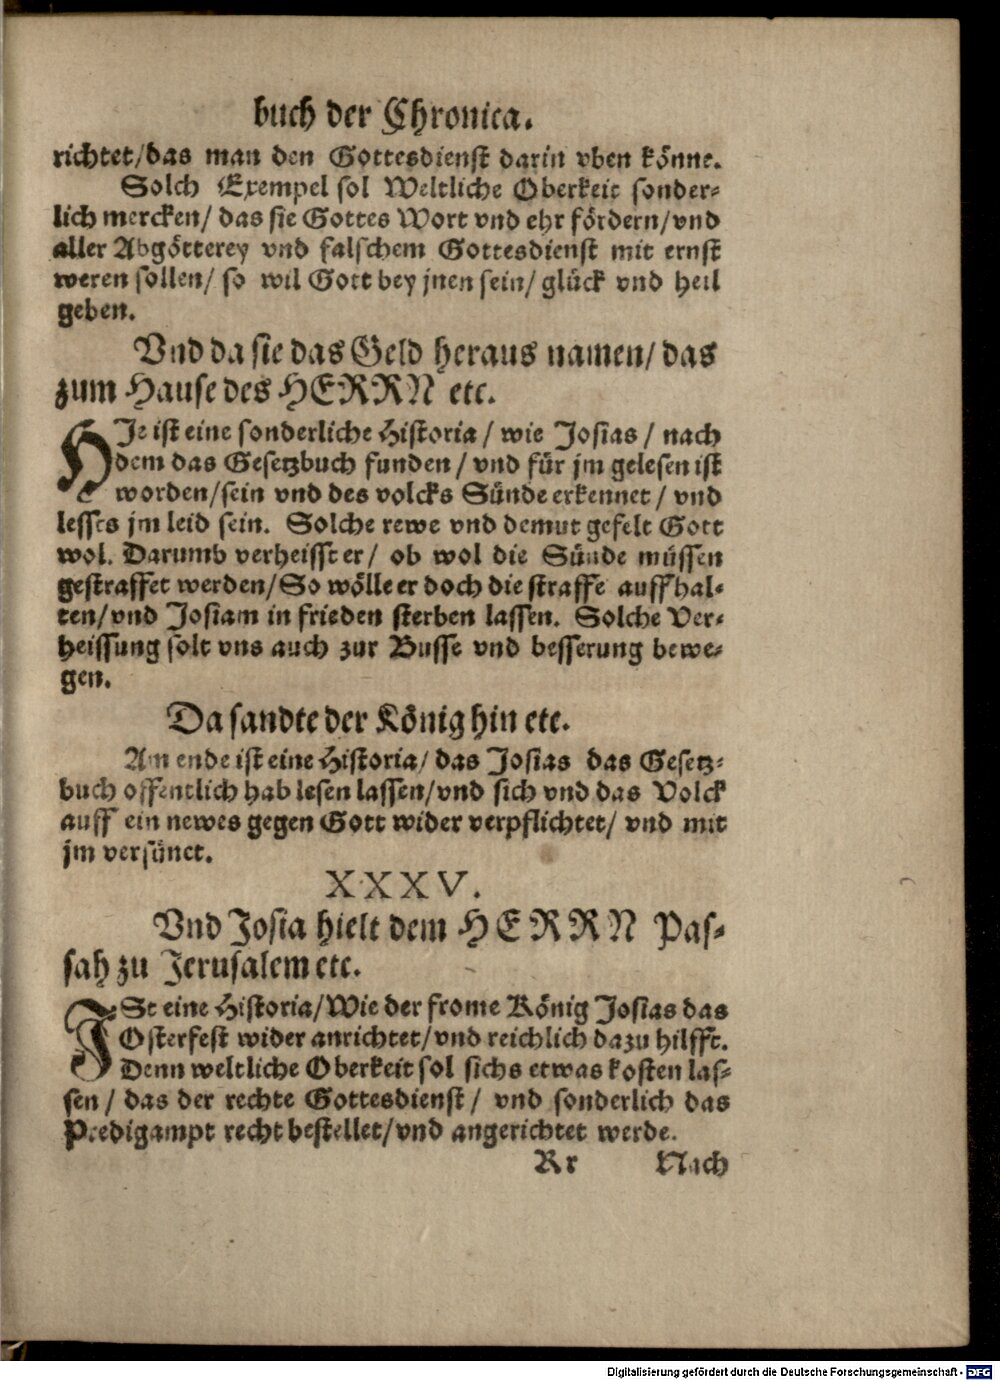 buch der Chronica.
richtet/das man den Gottesdienst darin vben könne.
Solch Exempel sol Weltliche Oberkeit sonder-
lich mercken/ das sie Gottes Wort vnd ehr fördern/vnd
aller Abgötterey vnd falschem Gottesdienst mit ernst
weren sollen/ so wil Gott bey jnen sein/ glück vnd heil
geben.
Vnd da sie das Geld heraus namen/ das
zum Hause des HERRN etc.
HJe ist eine sonderliche Historia / wie Josias / nach
dem das Gesetzbuch funden / vnd für jm gelesen ist
worden/sein vnd des volcks Sünde erkennet / vnd
lesses jm leid sein. Solche rewe vnd demut gefelt Gott
wol. Darumb verheisst er/ ob wol die Sünde müssen
gestraffet werden/So wölle er doch die straffe auffhal-
ten/vnd Josiam in frieden sterben lassen. Solche Ver-
heissung solt vns auch zur Busse vnd besserung bewe-
gen.
Da sandte der König hin etc.
Am ende ist eine Historia/ das Josias das Gesetz-
buch offentlich hab lesen lassen/vnd sich vnd das Volck
auff ein newes gegen Gott wider verpflichtet/ vnd mit
jm versünet.
XXXV.
Vnd Josia hielt dem HERRN Pas-
sah zu Jerusalem etc.
JSt eine Historia/Wie der frome König Josias das
Osterfest wider anrichtet/vnd reichlich dazu hilfft.
Denn weltliche Oberkeit sol sichs etwas kosten las-
sen / das der rechte Gottesdienst / vnd sonderlich das
Predigampt recht bestellet/vnd angerichtet werde.
Rr Nach
Digitalisierung gefördert durch die Deutsche Forschungsgemeinschaft - DFG